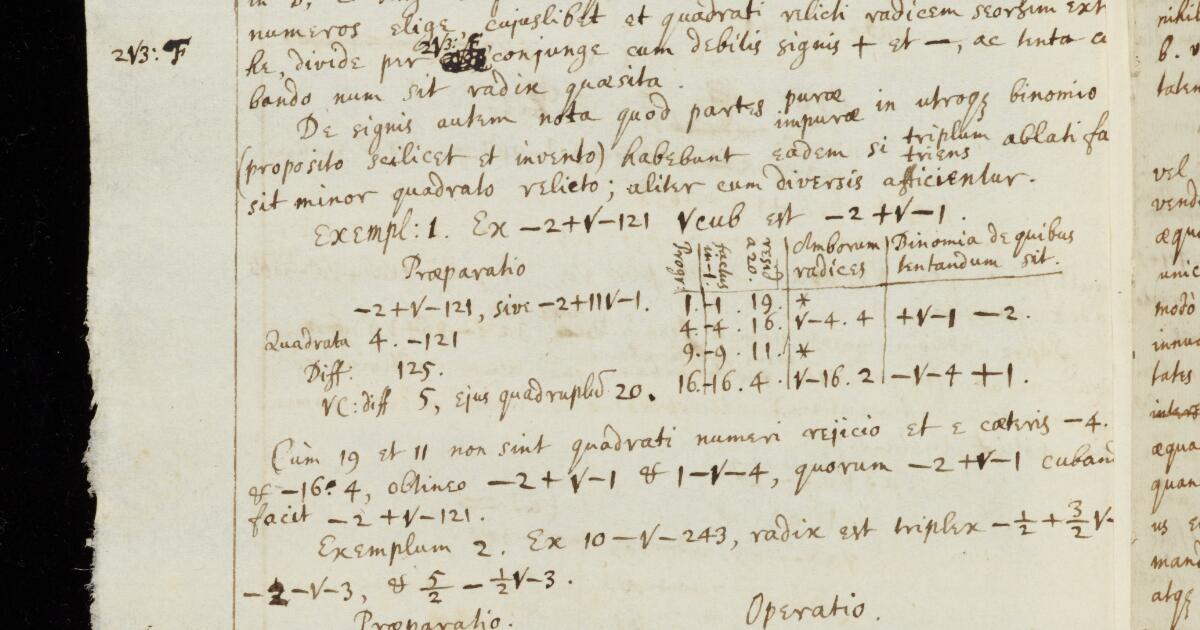 numeros elige cujuslibet et quadrati relicti radicem seorsim ext
2√3: F
he, divide per 2√3: F conjunge cum debitis signis + et −, ac tenta cu
bando num sit radix quæsita.
De signis autem nota quod partes puræ impuræ in utroqȝ binomio
(proposito scilicet et invento) habebunt eadem si triplum triens ablati fa
sit minor quadrato relicto; aliter cum diversis afficientur.
Exempl: 1. Ex −2+√−121 √cub est −2+√−1.
Præparatio
−2+√−121, sive −2+11√−1.
Quadrata 4. −121
Diff: 125.
√C: diff 5, ejus quadruplũ 20.
Progr. | factus in −1. | resid a 20. | Amborum radices | Binomia de quibus tentandum sit.
1. | −1 . 19. | *
4. | −4 . 16. | √−4. 4 | +√−1 −2.
9. | −9 . 11. | *
16. | −16. 4. | √−16. 2 | −√−4 +1.
Cùm 19 et 11 non sint quadrati numeri rejicio et e cæteris −4.
& −16. 4, obtineo −2+√−1 & 1−√−4, quorum −2+√−1 cuband
facit −2+√−121.
Exemplum 2. Ex 10−√−243, radix est triplex −1/2+3/2√−
−2−√−3, & 5/2−1/2√−3.
Præparatio. Operatio.
nihil
b.
talem
vel
vend
æqu
unic
modò
innu
tates
æqua
quan
us
mand
atqȝ